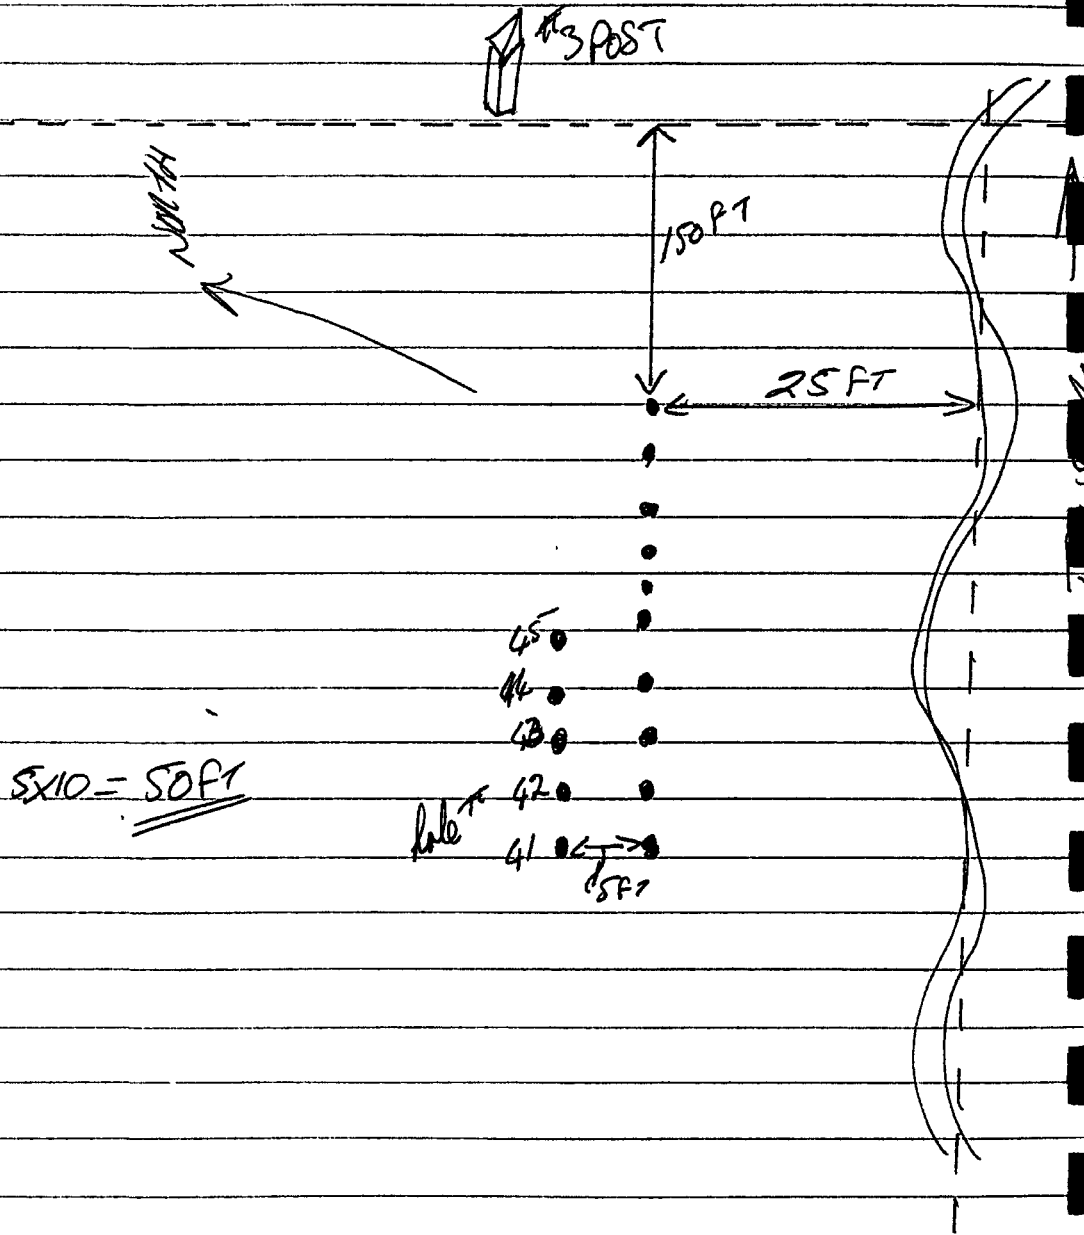 #3 POST
NORTH
150 FT
25 FT
45
44
43
5X10 = 50FT
hole # 42
41
5FT